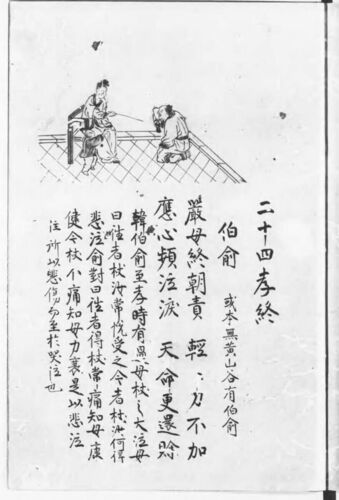 二十四孝終
伯俞 或本無黄山谷有伯俞
嚴母終朝責 輕〻力不加
應心頻泣淚 天命更還賒
韓伯俞至孝時有過母杖之大泣母
曰往者杖汝常悅受之今者杖汝何得
悲泣俞對曰往者得杖常痛知母康
使今杖不痛知母力衰是以悲泣
注所以悲傷句至於哭泣也